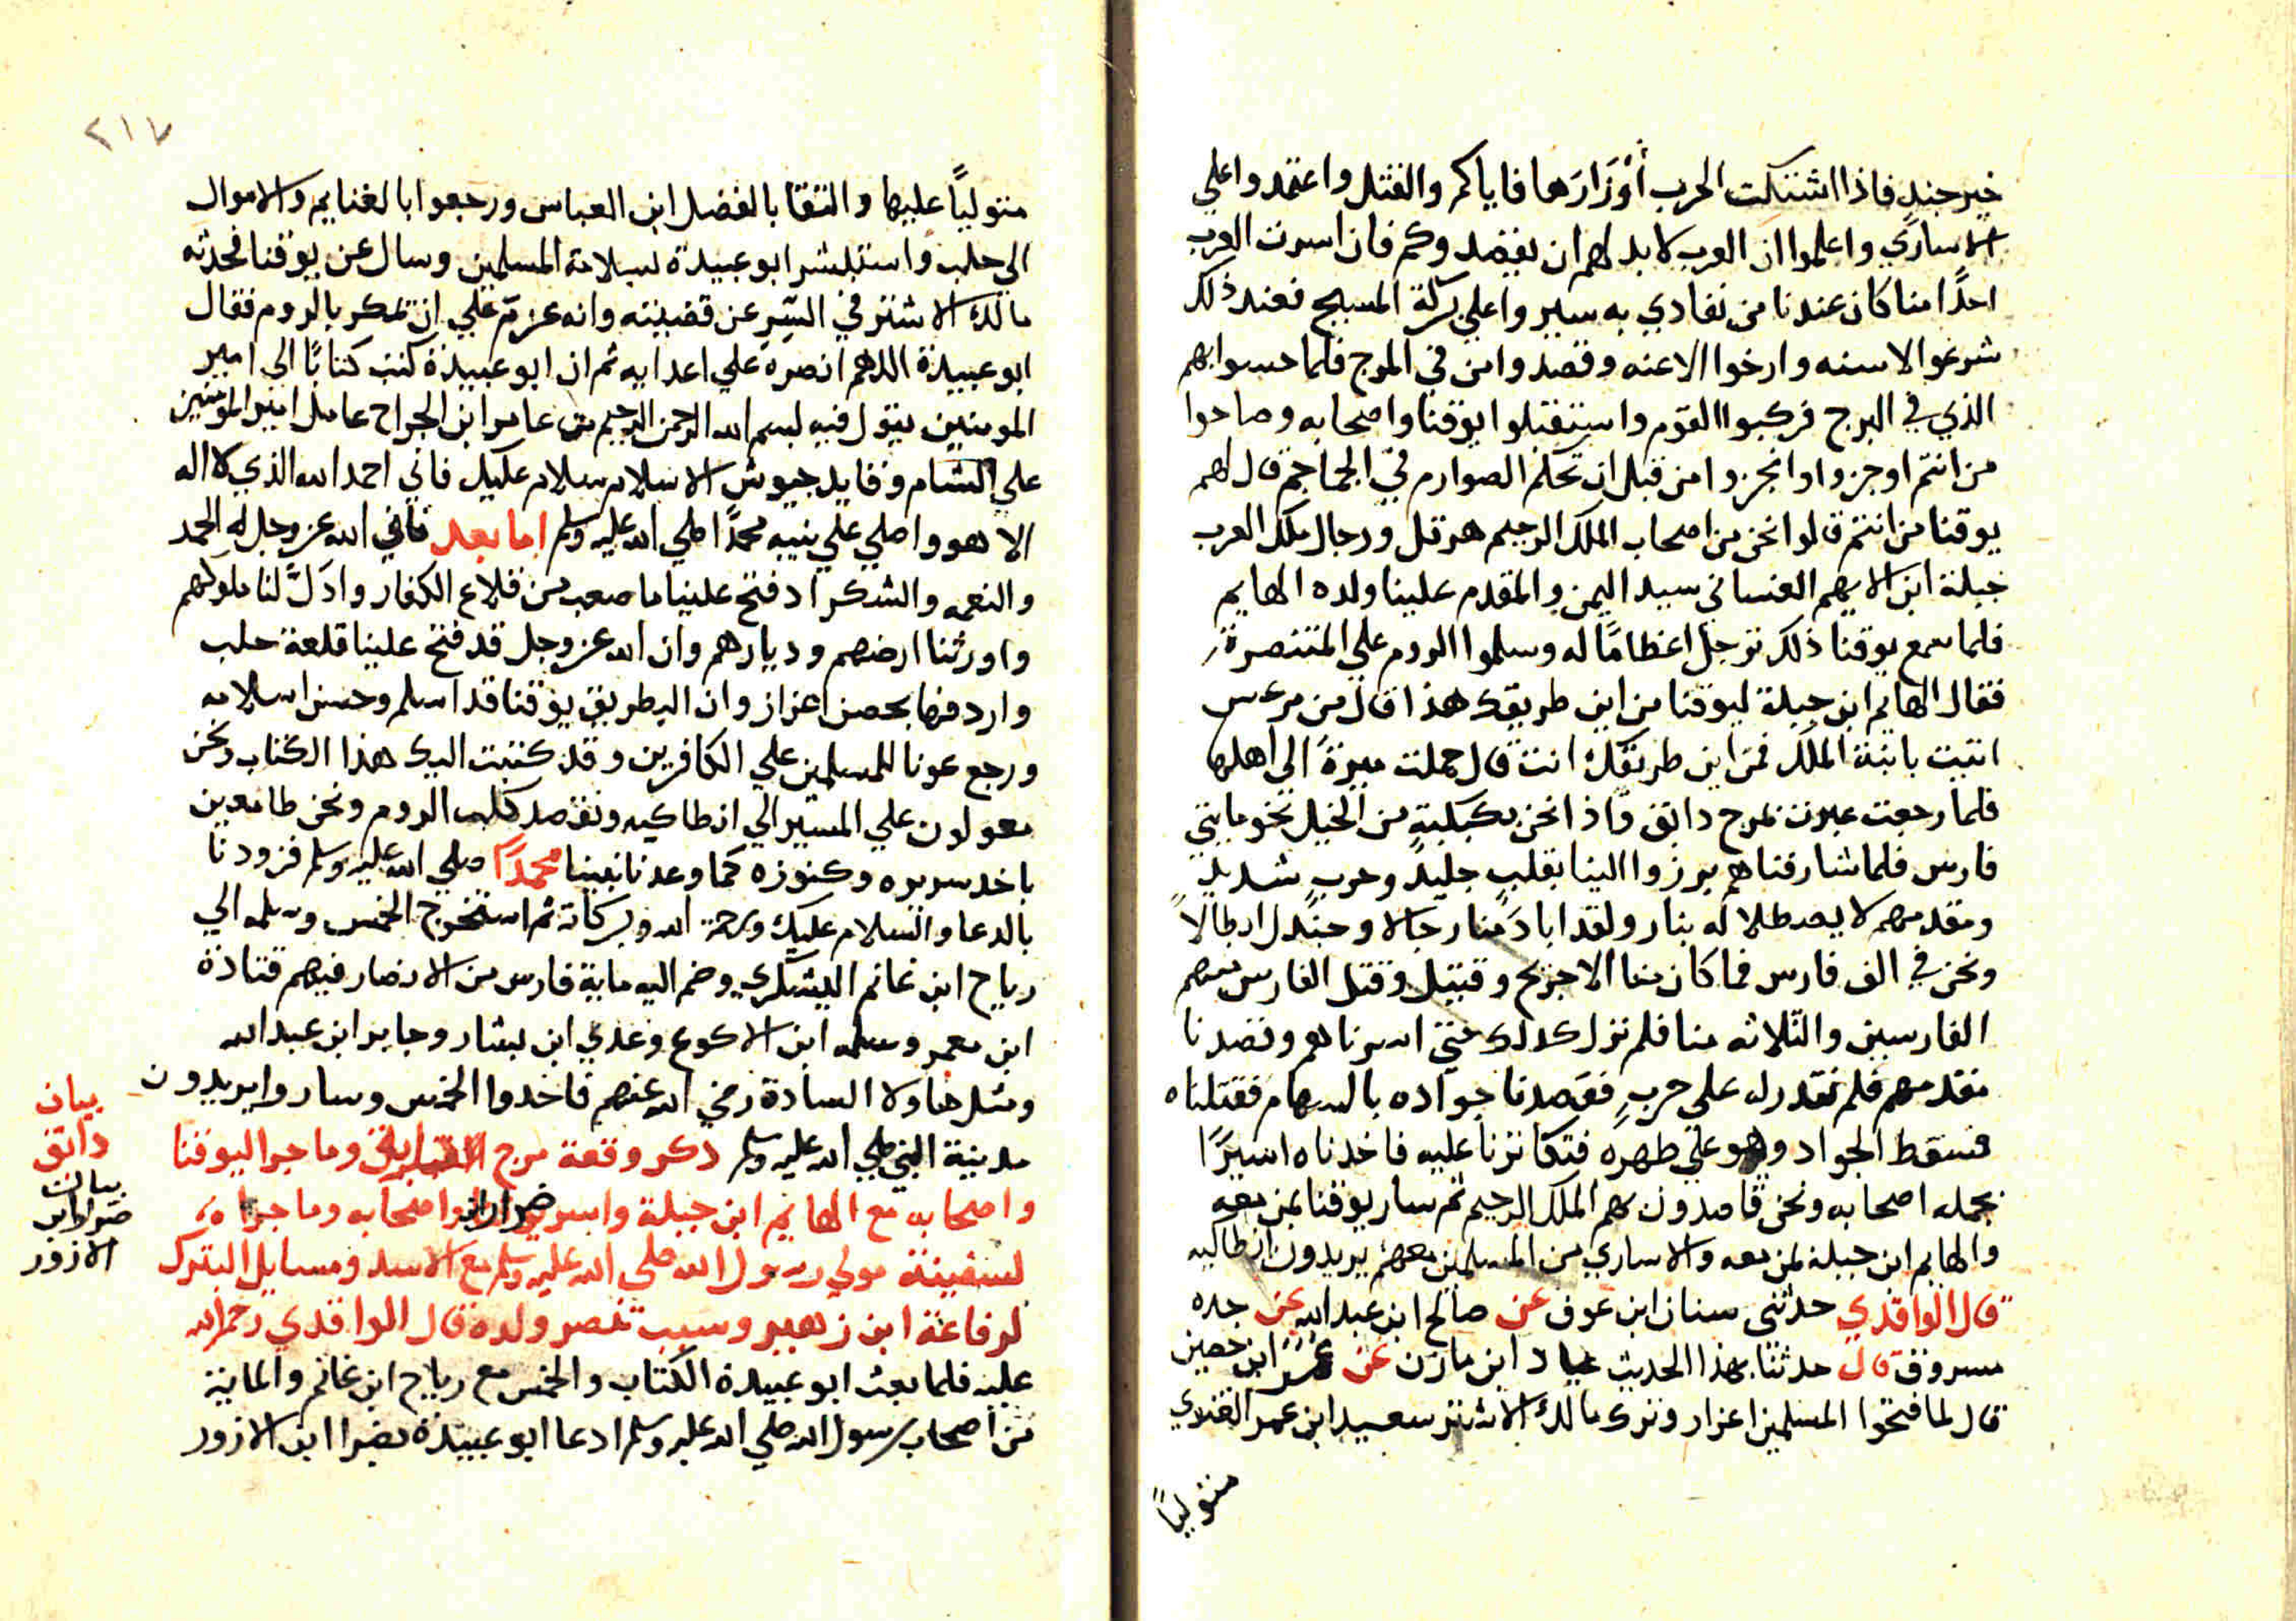 خير جند فاذا اشتبكت الحرب أوْزَارَها فاياكم والقتل واعتمدوا علي
الاساري واعلموا ان العرب لا بد لهم ان يقصدوكم فان اسرت العرب
احدًا منا كان عندنا من نفادي به سيروا علي بركة المسيح فعند ذلك
شرعوا الاسنه وارخوا الاعنه وقصدوا من في المرج فلما حسوا بهم
الذي في البرج فركبوا القوم واستقبلوا يوقنا واصحابه وصاحوا
من انتم اوجزوا وانجزوا من قبل ان تحكم الصوارم في الجماجم قال لهم
يوقنا من انتم قالوا نحن من اصحاب الملك الرحيم هرقل ورجال ملك العرب
جبلة ابن الايهم الغساني سيد اليمن والمقدم علينا ولده الهايم
فلما سمع يوقنا ذلك ترجل اعظامًا له وسلموا الروم علي المتنصرة
فقال الهايم ابن جبلة ليوقنا من اين طريقك هذا قال من مرعس
اتيت بابنة الملك فمن اين طريقك انت قال حملت ميرةً الى اهلها
فلما رجعت عبرت بمرج دابق واذا نحن بكبكبةٍ من الخيل نحو مايتي
فارس فلما شارفناهم برزوا الينا بقلبٍ جليدٍ وحربٍ شديدٍ
ومقدمهم لا يصطلا له بنار ولقد اباد منا رجالا وجندل ابطالاً
ونحن في الف فارس فما كان منا الا جريح وقتيل وقتل الفارس منهم
الفارسين والثلاثه منا فلم نزل كدلك حتي اسرناهم وقصدنا
مقدمهم فلم نقدر له علي حربٍ فقصدنا جواده بالسهام فقتلناه
فسقط الجواد وهو علي ظهره فتكاثرنا عليه فاخدناه اسيرًا
بجمله اصحابه ونحن قاصدون بهم الملك الرحيم ثم سار يوقنا بمن معه
والهايم ابن جبلة بمن معه والاساري من المسلمين معهم يريدون انطاكيه
قال الواقدي حدثني سنان ابن عوف عن صالح ابن عبد الله عن جده
مسروق قال حدثنا بهذا الحديث عباد ابن مازن عن ابن حصين
قال لما فتحوا المسلمين اعزار وترك مالك الاشتر سعيد ابن عمر الغنوي
متوليًا
٢١٧
متوليًا عليها والتقا بالفضل ابن العباس ورجعوا بالغنايم والاموال
الى حلب واستبشر ابو عبيدة بسلامة المسلمين وسال عن يوقنا فحدثه
مالك الاشتر في السِّرِ عن قضيته وانه عزم علي ان تمكر بالروم فقال
ابو عبيدة اللهم انصره علي اعدايه ثم ان ابو عبيدة كتب كتابًا الى امير
المومنين يقول فيه بسم الله الرحمن الرحيم من عامر ابن الجراح عامل امير المومنين
علي الشام وقايد جيوش الاسلام سلام عليك فاني احمد الله الذي لا اله
الا هو واصلي علي نبيه محمدًا صلي الله عليه وسلم اما بعد فاني الله عز وجل له الحمد
والنعمه والشكر اد فتح علينا ما صعب من قلاع الكفار وادَلَّ لنا ملوكهم
واورثنا ارضهم وديارهم وان الله عز وجل قد فتح علينا قلعة حلب
واردفها بحصن اعزاز وان البطريق يوقنا قد اسلم وحسن اسلامه
ورجع عونا للمسلمين علي الكافرين وقد كتبت اليك هذا الكتاب ونحن
معولون علي المسير الي انطاكيه ونقصد كلب الروم ونحن طامعين
باخد سريره وكنوزه كما وعدنا نبينا محمدًا صلي الله عليه وسلم فزودنا
بالدعا والسلام عليك ورحمة الله وبركاته ثم استخرج الخمس وسلمه الي
رياح ابن غانم اليشكري وضم اليه ماية فارس من الانصار فيهم قتادة
ابن معمر وسلمه ابن الاكوع وعدي ابن بشار وجابر ابن عبد الله
ومثل هاولا السادة رضي الله عنهم فاخدوا الخمس وساروا يريدون
مدينة النبي صلي الله عليه وسلم دكر وقعة مرج دابق وما جرا ليوقنا
واصحابه مع الهايم ابن جبلة واسر ضرار ابن واصحابه وما جرا
لسفينة مولي رسول الله صلي الله عليه وسلم مع الاسد ومسايل البترك
لرفاعة ابن زهير وسبب تنصر ولده قال الواقدي رحمه الله
عليه فلما بعث ابو عبيدة الكتاب والخمس مع رياح ابن غانم والماية
من اصحاب رسول الله صلي الله عليه وسلم ادعا ابو عبيدة بضرا ابن الازور
بيان
دابق
بيان
ضرار ابن
الازور